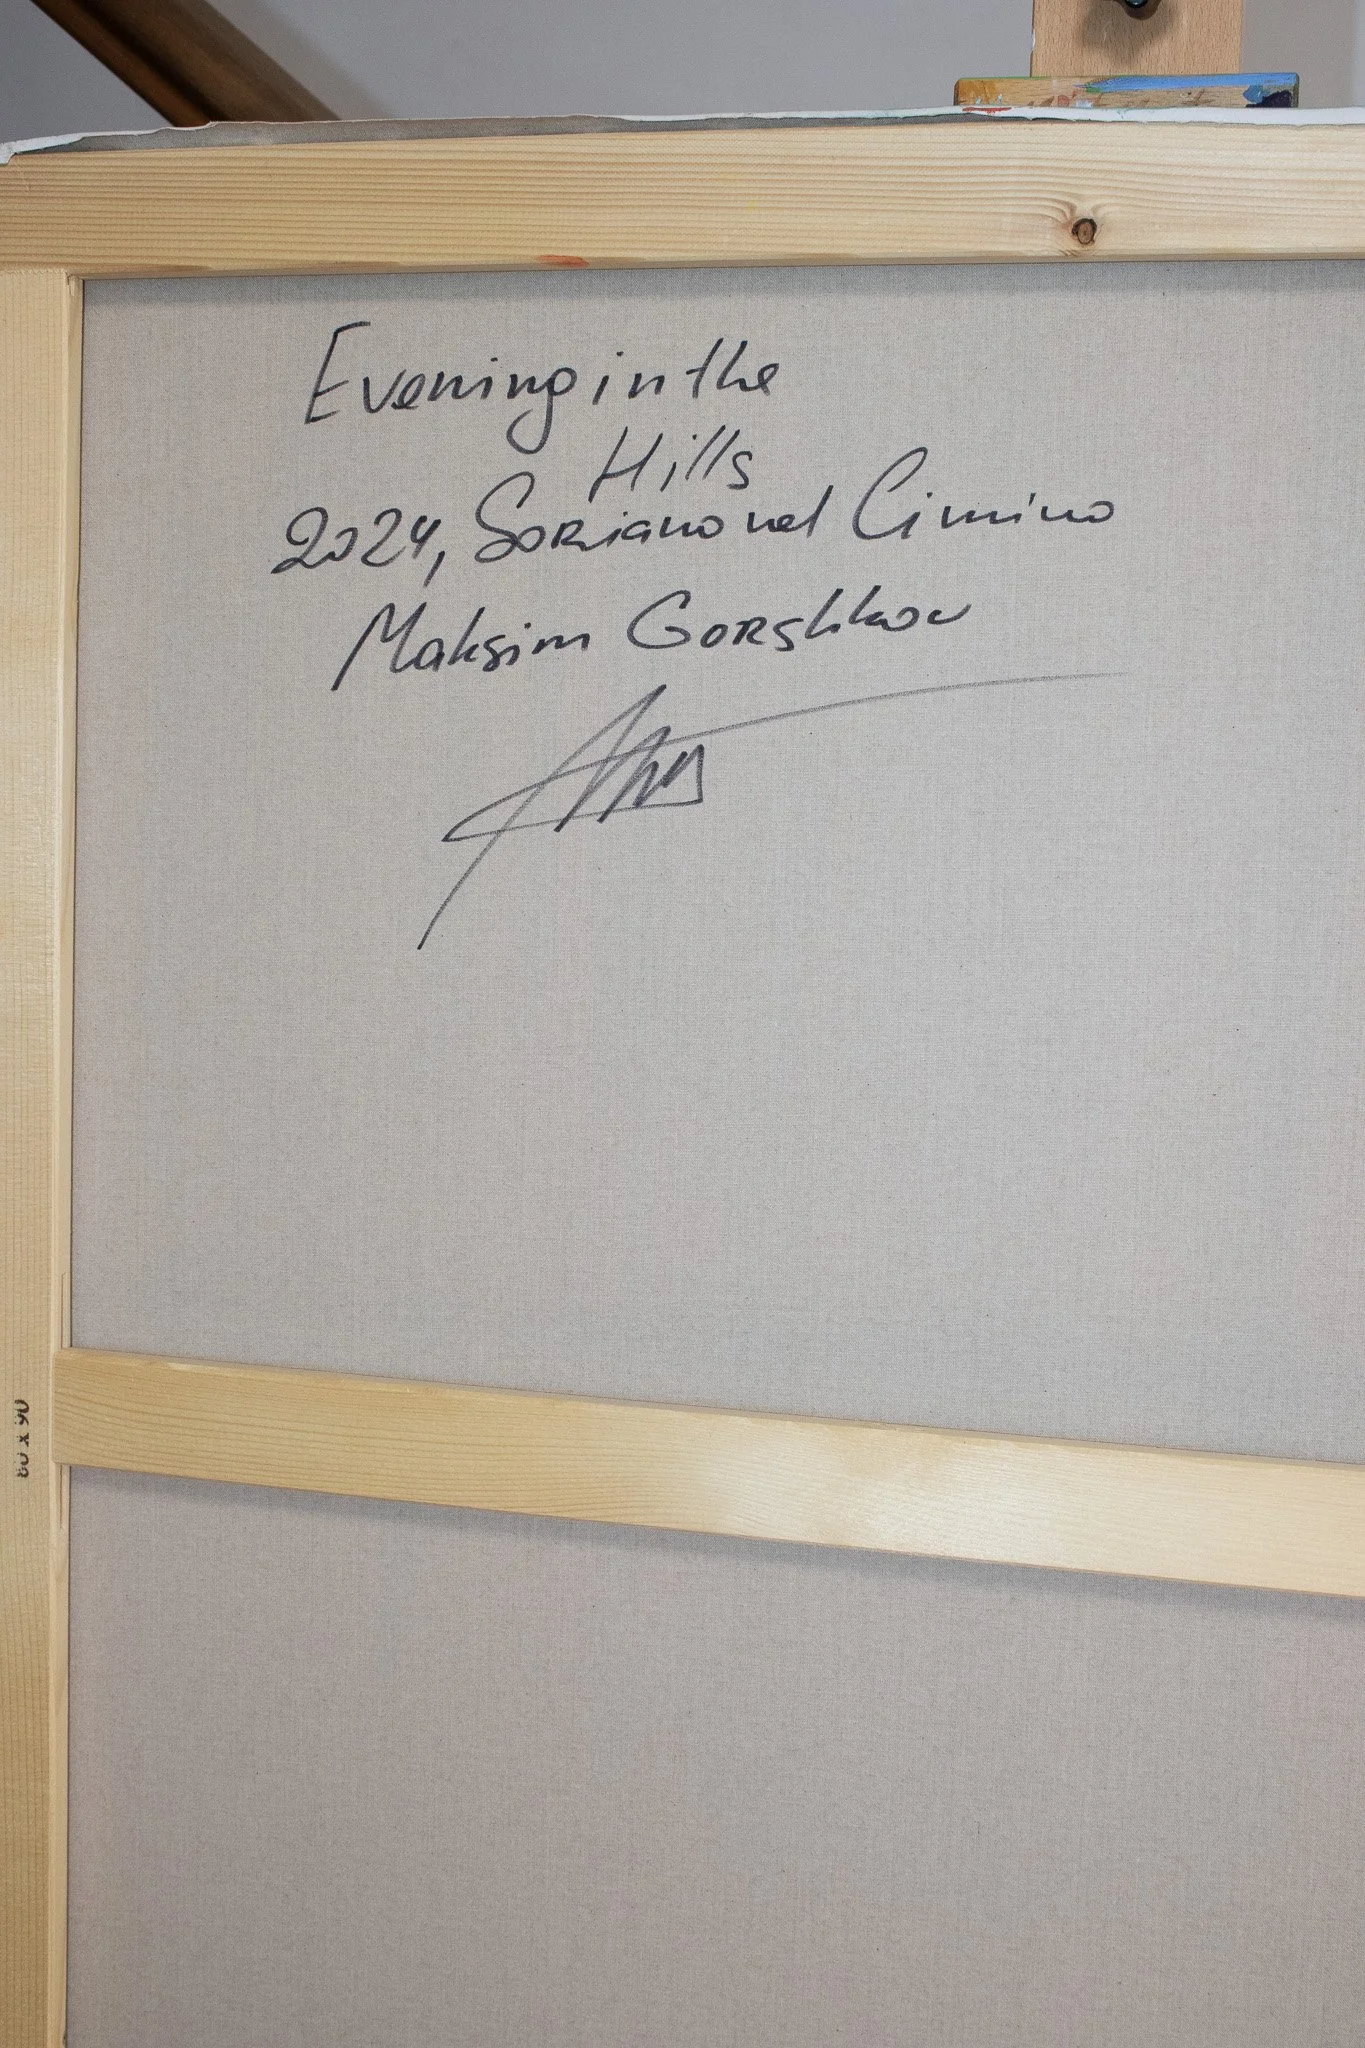 Evening in the
Hills
2024, Soriano nel Cimino
Maksim Gorshkov
80 x 90